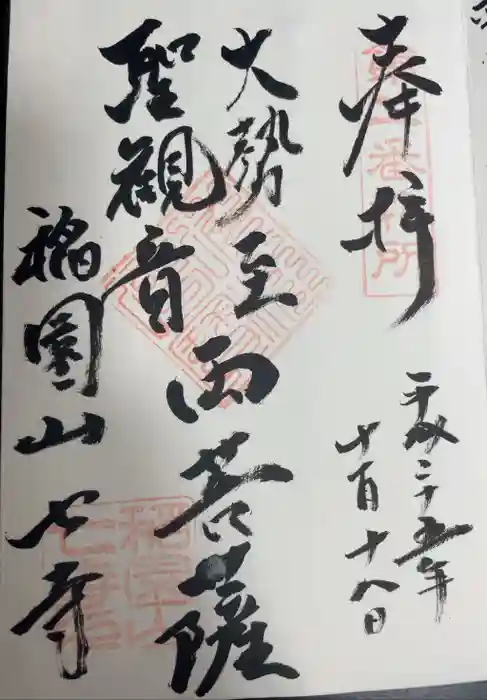 奉拝
平成二十五年
十一月十八日
大勢至
聖觀音
両菩薩
稲園山七寺